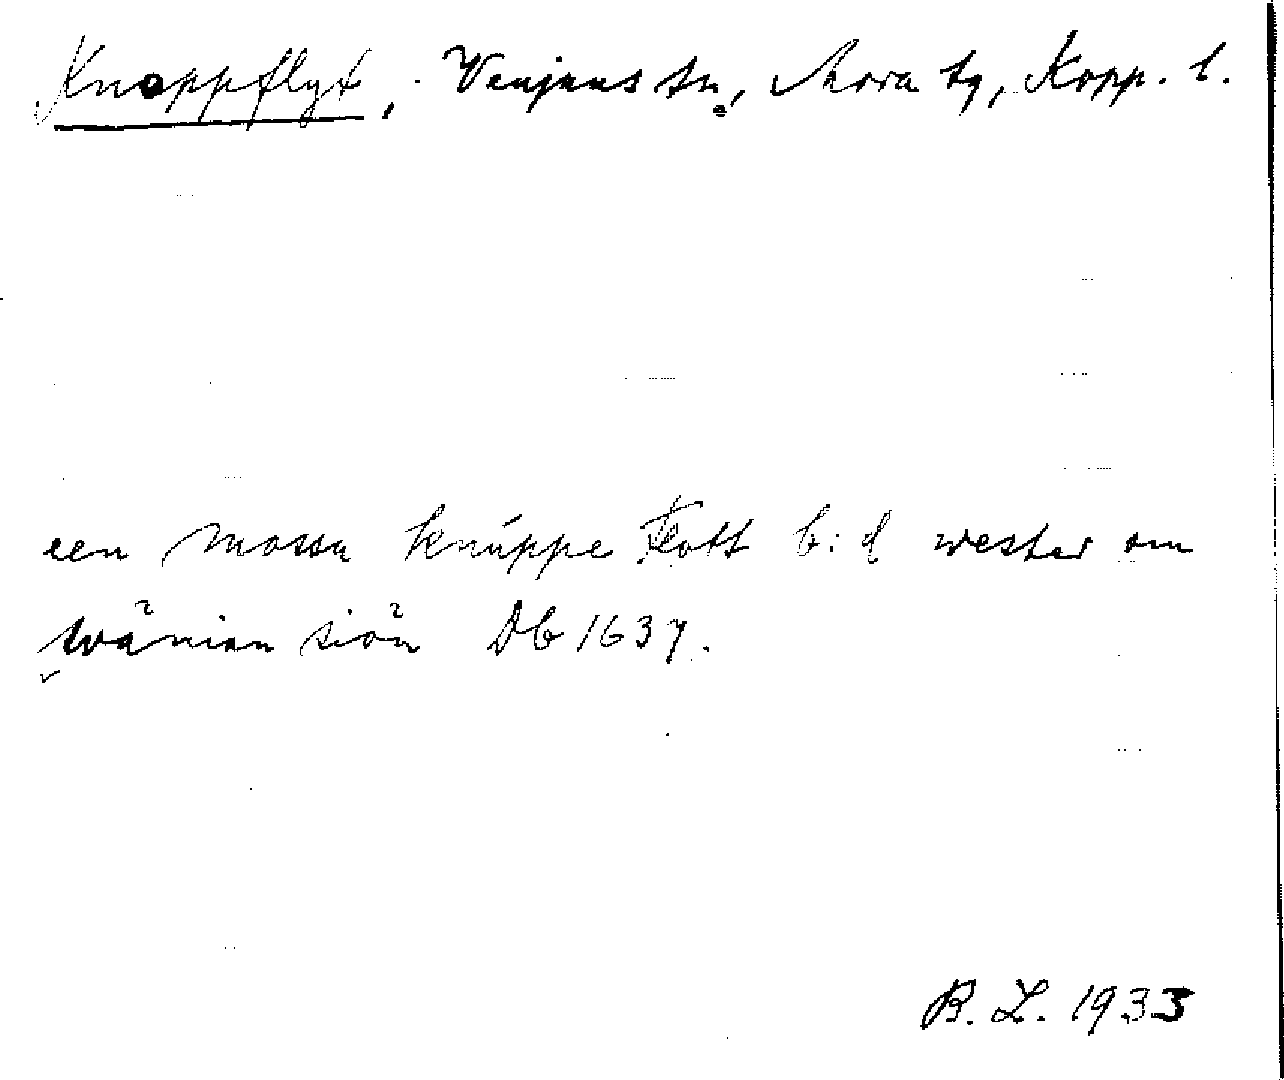 Knoppflyt, Venjans sn, Mora tg, Kopp. l.
een mossa knúppe flott b:d wester om
wänian siön Db 1637.
R. L. 1933